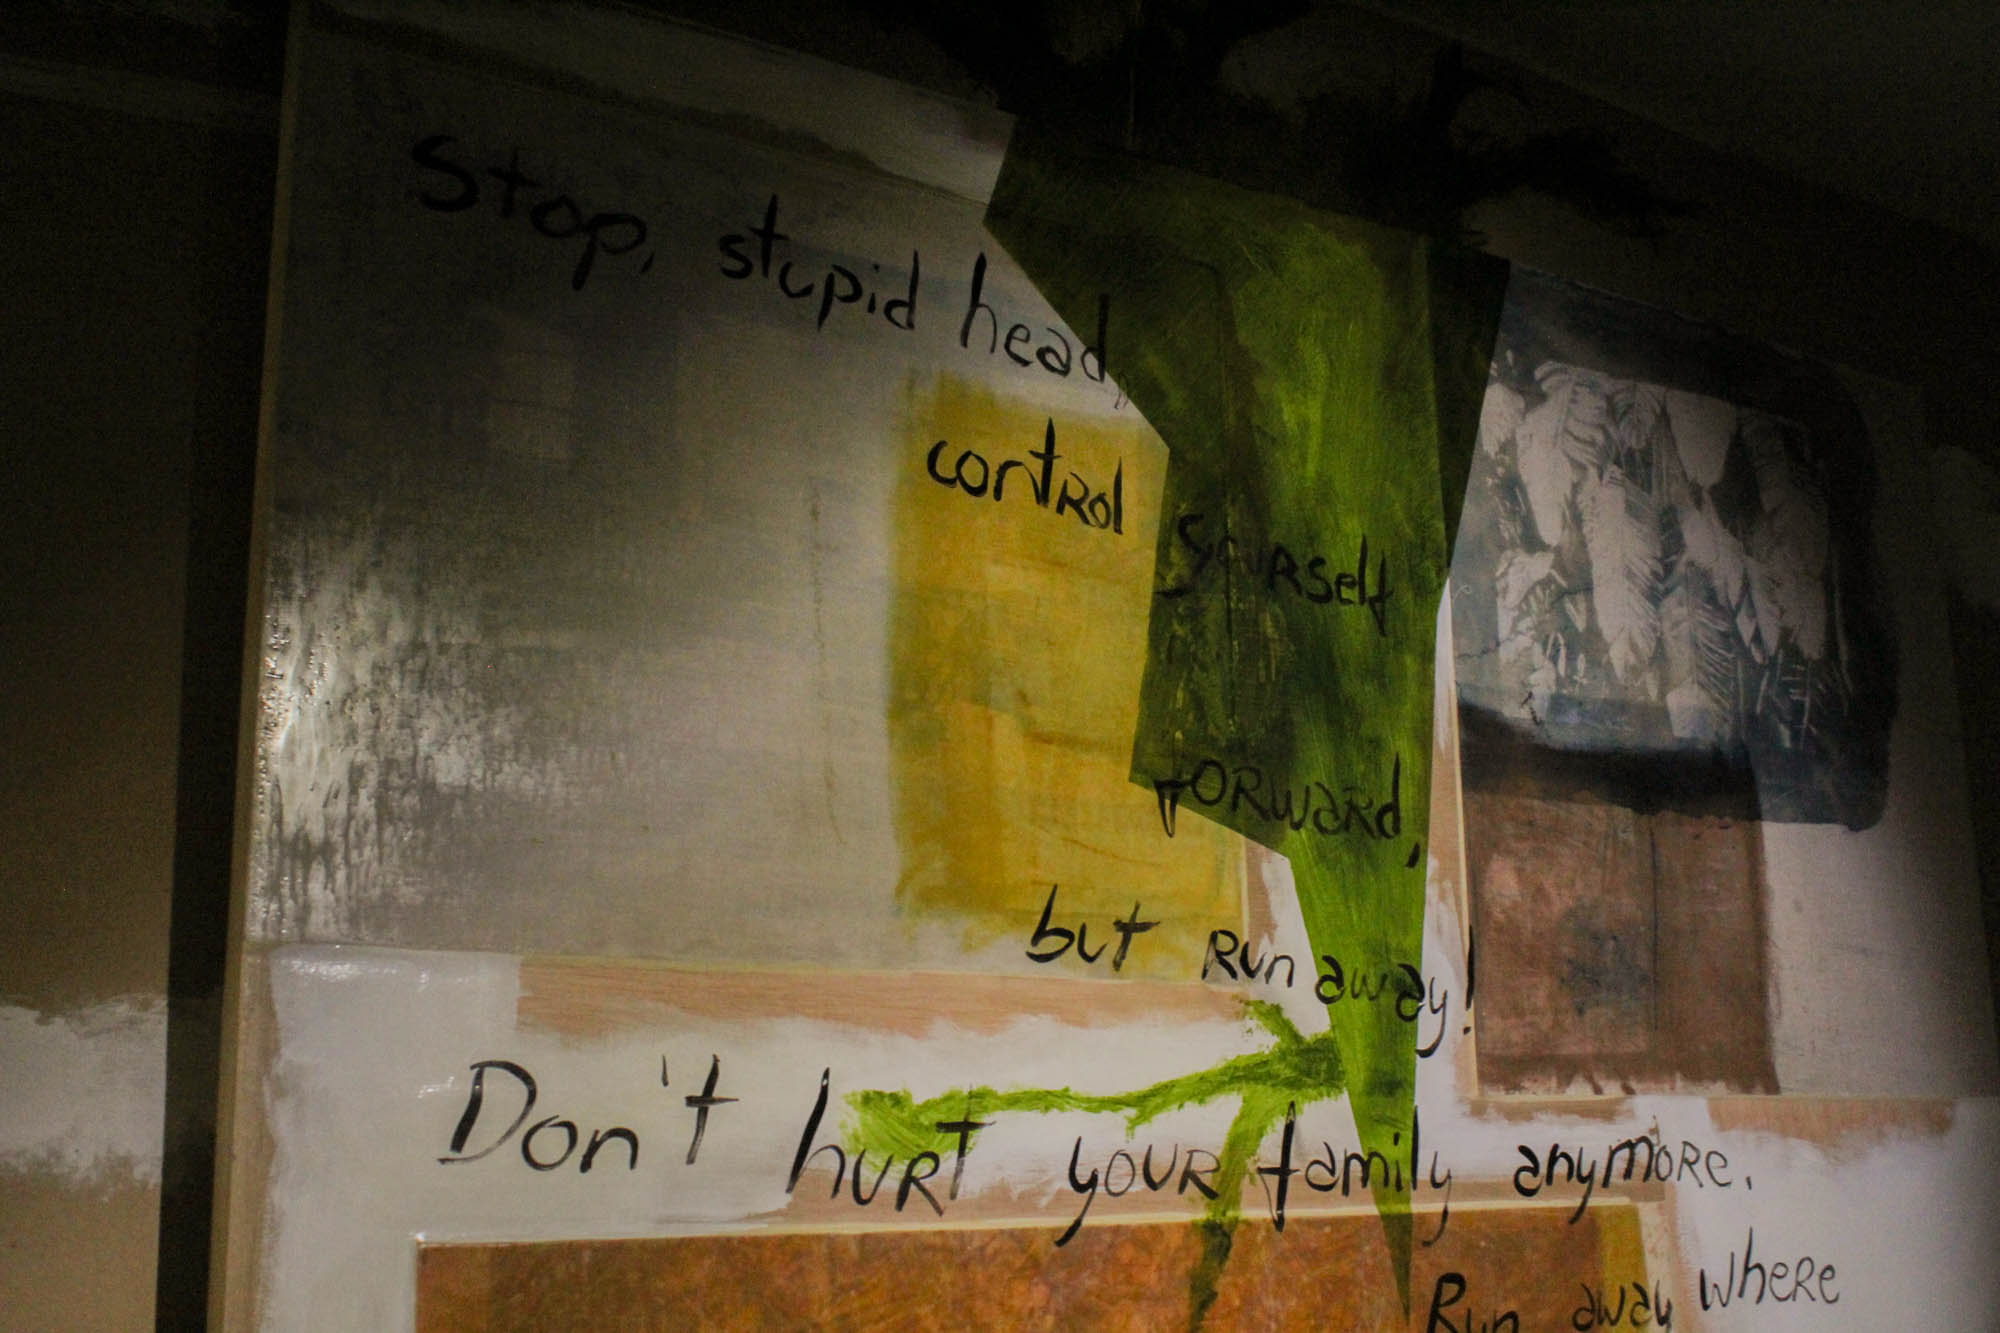 Stop, stupid head,
control yourself
forward,
but Run away!
Don't hurt your family anymore.
Run away where